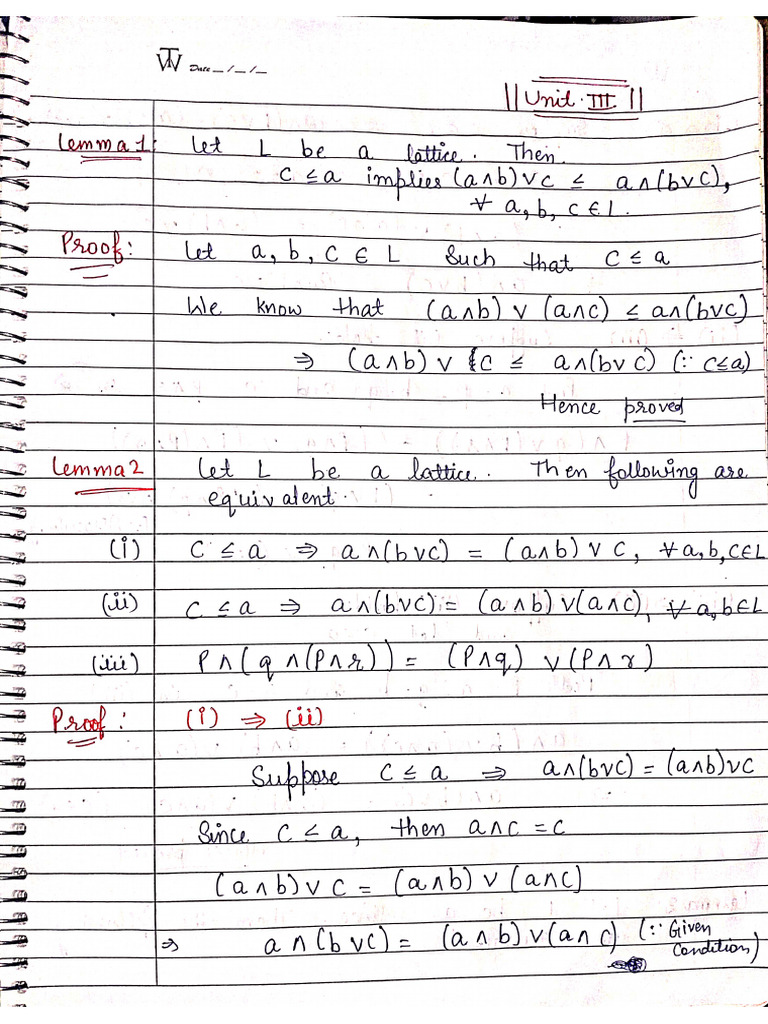 TW Date _/_/_
|| Unit. III ||
Lemma 1: Let L be a lattice. Then.
C ≤ a implies (a∧b)∨c ≤ a∧(b∨c),
∀ a, b, c ∈ L.
Proof: Let a, b, c ∈ L Such that C ≤ a
We know that (a∧b) ∨ (a∧c) ≤ a∧(b∨c)
⇒ (a∧b) ∨ c ≤ a∧(b∨c) (∵ c≤a)
Hence proved
Lemma 2 Let L be a lattice. Then following are
equivalent.
(i) C ≤ a ⇒ a∧(b∨c) = (a∧b) ∨ c, ∀ a,b,c∈L
(ii) C ≤ a ⇒ a∧(b∨c) = (a∧b)∨(a∧c), ∀ a,b∈L
(iii) P∧(q∧(P∧r)) = (P∧q) ∨(P∧r)
Proof: (i) ⇒ (ii)
Suppose C ≤ a ⇒ a∧(b∨c) = (a∧b)∨c
Since C ≤ a, then a∧c = c
(a∧b)∨c = (a∧b) ∨ (a∧c)
⇒ a∧(b∨c) = (a∧b)∨(a∧c) (∵ Given
Condition)